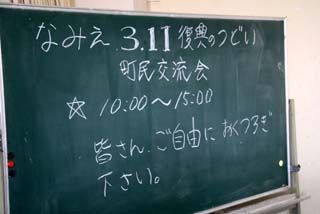 なみえ 3.11 復興のつどい
町民交流会
☆ 10:00～15:00
皆さん、ご自由におくつろぎ
下さい。